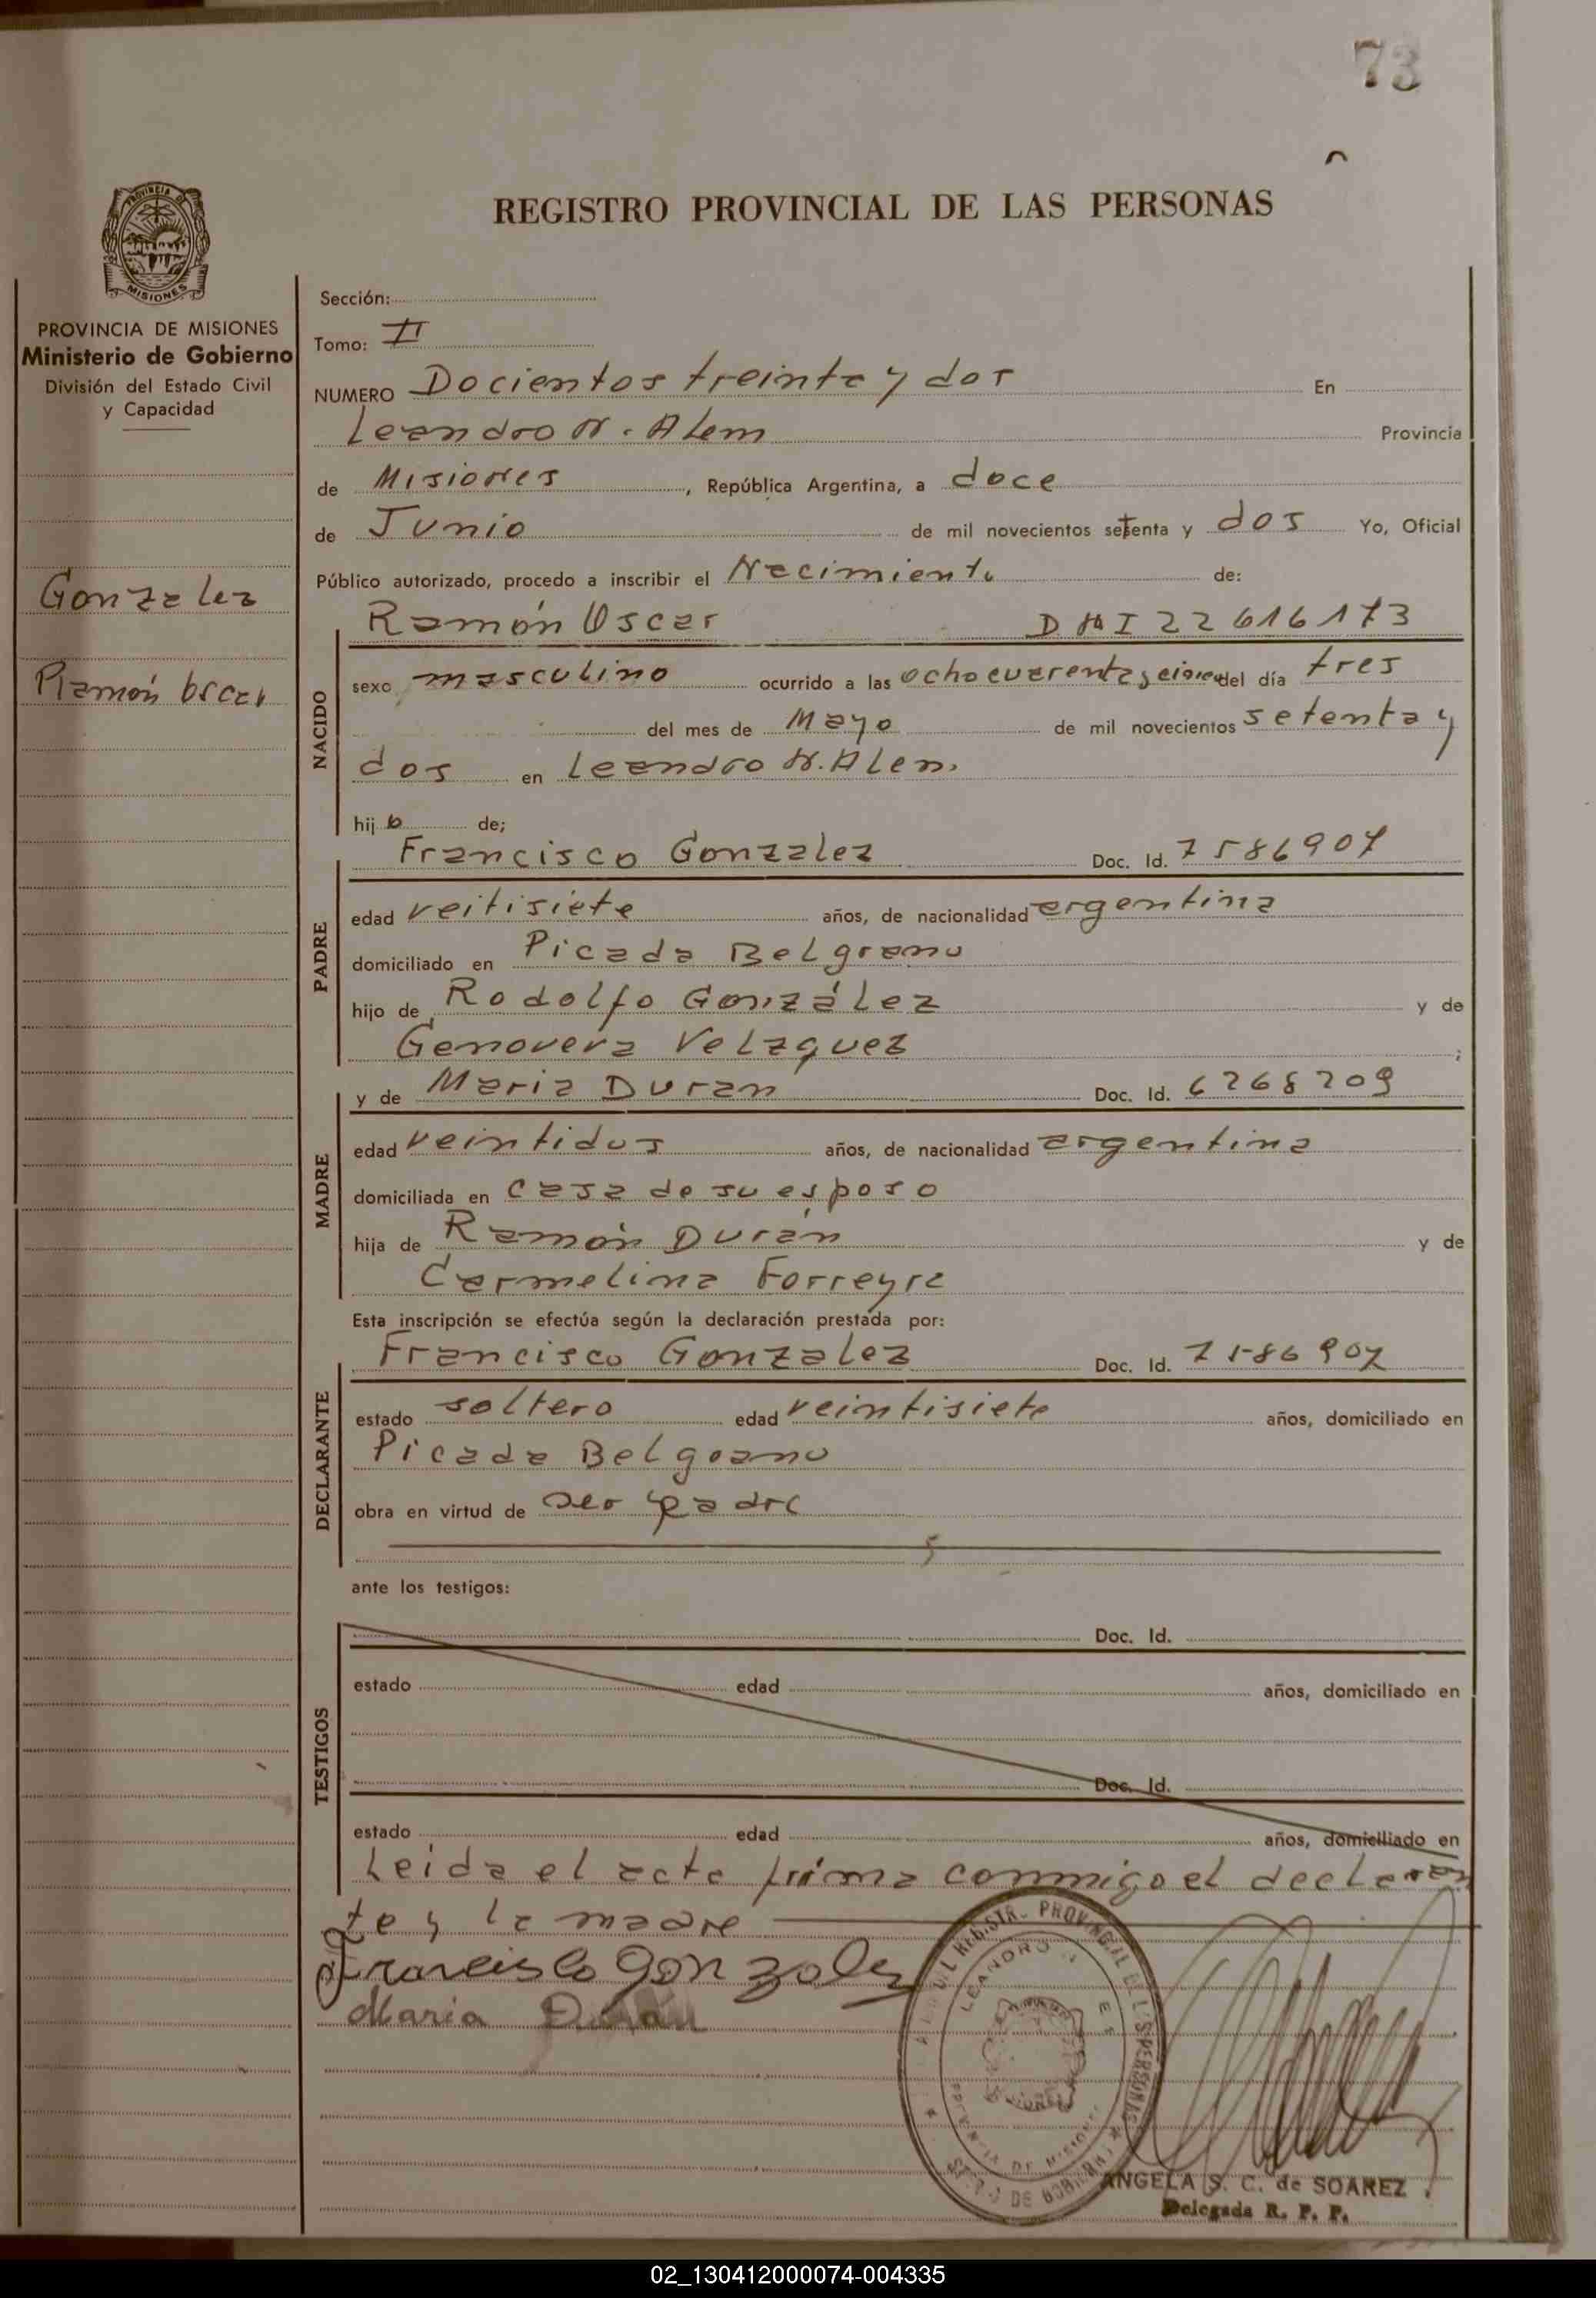 73
REGISTRO PROVINCIAL DE LAS PERSONAS
PROVINCIA DE MISIONES
Ministerio de Gobierno
División del Estado Civil
y Capacidad
Gonzalez
Ramón Oscar
Sección:
Tomo: II
NUMERO Docientos treinta y dos En
Leandro N. Alem Provincia
de Misiones, República Argentina, a doce
de Junio de mil novecientos setenta y dos Yo, Oficial
Público autorizado, procedo a inscribir el Nacimiento de:
Ramón Oscar DNI 22616173
NACIDO
sexo masculino ocurrido a las ocho cuarenta y cinco del día tres
del mes de Mayo de mil novecientos setenta y
dos en Leandro N. Alem.
hijo de;
Francisco Gonzalez Doc. Id. 7586907
PADRE
edad veitisiete años, de nacionalidad argentina
domiciliado en Picada Belgrano
hijo de Rodolfo González y de
Genoveva Velazquez ;
y de Maria Duran Doc. Id. 6268209
MADRE
edad veintidos años, de nacionalidad argentina
domiciliada en casa de su esposo
hija de Ramón Durán y de
Carmelina Forreyra
Esta inscripción se efectúa según la declaración prestada por:
Francisco Gonzalez Doc. Id. 7586907
DECLARANTE
estado soltero edad veintisiete años, domiciliado en
Picada Belgrano
obra en virtud de ser padre
ante los testigos:
Doc. Id.
TESTIGOS
estado edad años, domiciliado en
Doc. Id.
estado edad años, domiciliado en
Leida el acta firma conmigo el declaran
te y la madre
Francisco Gonzalez
Maria Duran
LEANDRO N
PROVINCIA DE MISIONES
ANGELA S. C. de SOAREZ
Delegada R. P. P.
02_130412000074-004335